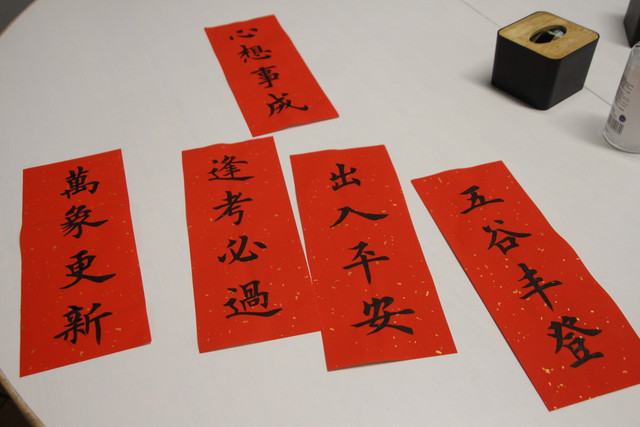 心想事成
萬象更新
逢考必過
出入平安
五谷丰登